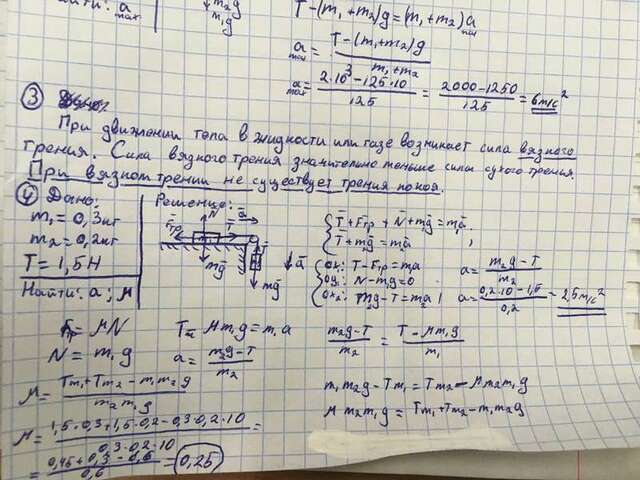 T-(m₁+m₂)g=(m₁+m₂)a max
a max = T-(m₁+m₂)g / m₁+m₂
a max = 2·10³-125·10 / 125 = 2000-1250 / 125 = 6 м/с²
③
При движении тела в жидкости или газе возникает сила вязкого
трения. Сила вязкого трения значительно меньше силы сухого трения
При вязком трении не существует трения покоя.
④ Дано:
m₁=0,3кг
m₂=0,2кг
T=1,5H
Найти: a; μ
Решение:
T+Fтр+N+mg=ma,
T+mg=ma
ox: T-Fтр=ma
oy: N-mg=0
ox₂: mg-T=ma
a = m₂g-T / m₂
a = 0,2·10-1,5 / 0,2 = 2,5м/с²
μN
N=m₁g
T-μm₁g=m₁a
a = m₂g-T / m₂
m₂g-T / m₂ = T-μm₁g / m₁
m₁m₂g-Tm₁=Tm₂-μm₂m₁g
μm₂m₁g=Tm₁+Tm₂-m₁m₂g
μ = Tm₁+Tm₂-m₁m₂g / m₂m₁g
μ = 1,5·0,3+1,5·0,2-0,3·0,2·10 / 0,3·0,2·10 =
= 0,45+0,3-0,6 / 0,6 = 0,25